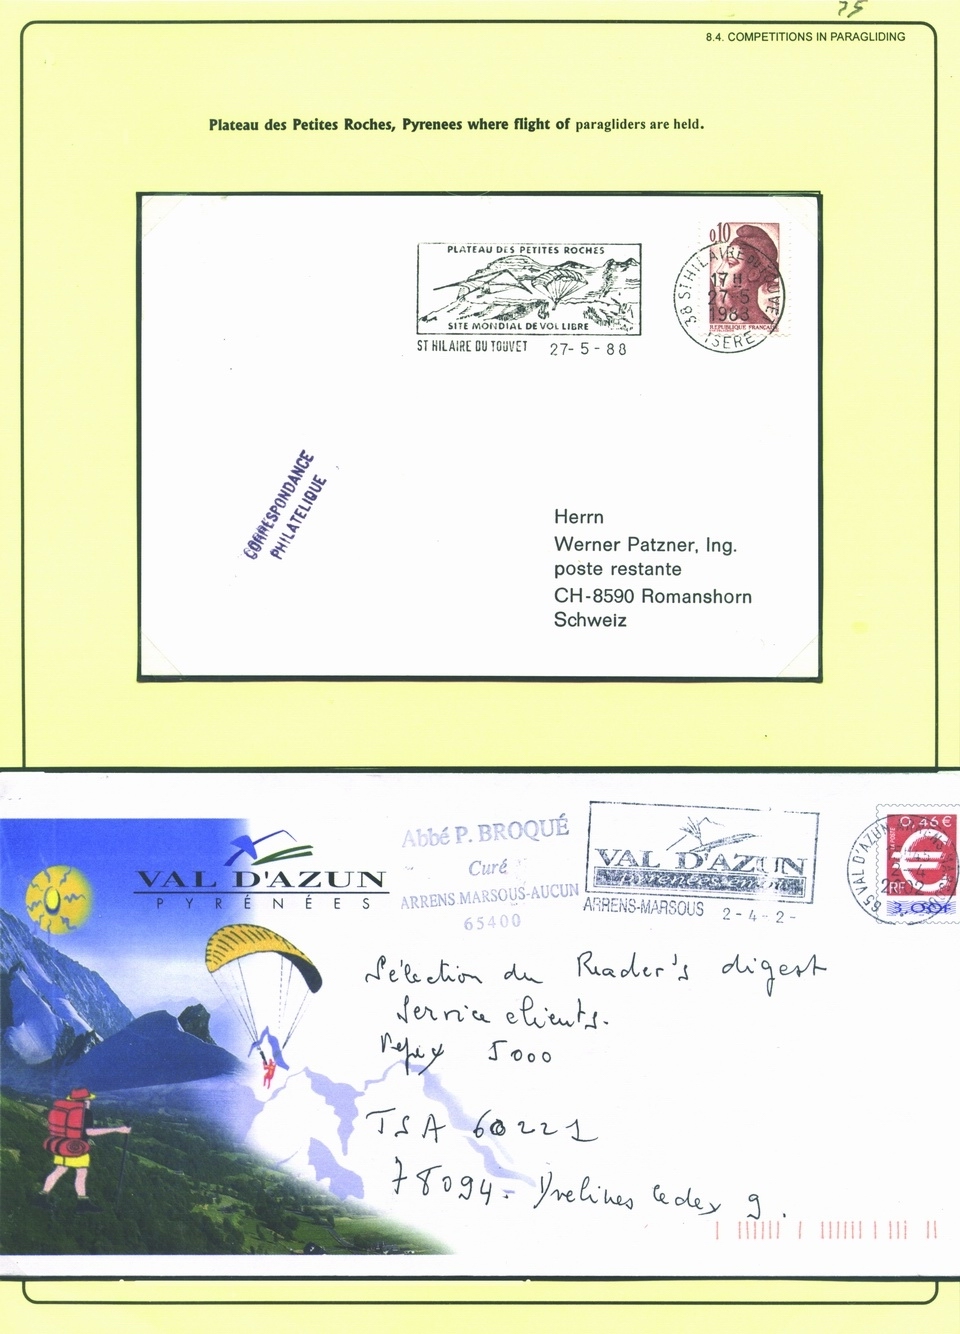 75
8.4. COMPETITIONS IN PARAGLIDING
Plateau des Petites Roches, Pyrenees where flight of paragliders are held.
PLATEAU DES PETITES ROCHES
SITE MONDIAL DE VOL LIBRE
ST HILAIRE DU TOUVET 27-5-88
0,10
REPUBLIQUE FRANCAISE
38 ST HILAIRE DU TOUVET
17 H
27-5
1988
ISERE
CORRESPONDANCE
PHILATELIQUE
Herrn
Werner Patzner, Ing.
poste restante
CH-8590 Romanshorn
Schweiz
VAL D'AZUN
PYRÉNÉES
Abbé P. BROQUÉ
Curé
ARRENS MARSOUS-AUCUN
65400
VAL D'AZUN
ARRENS-MARSOUS 2-4-2-
0,46 €
RF
3,00F
65 VAL D'AZUN
Sélection du Reader's digest
Service clients.
5000
TSA 60221
78094. Yvelines cedex 9.